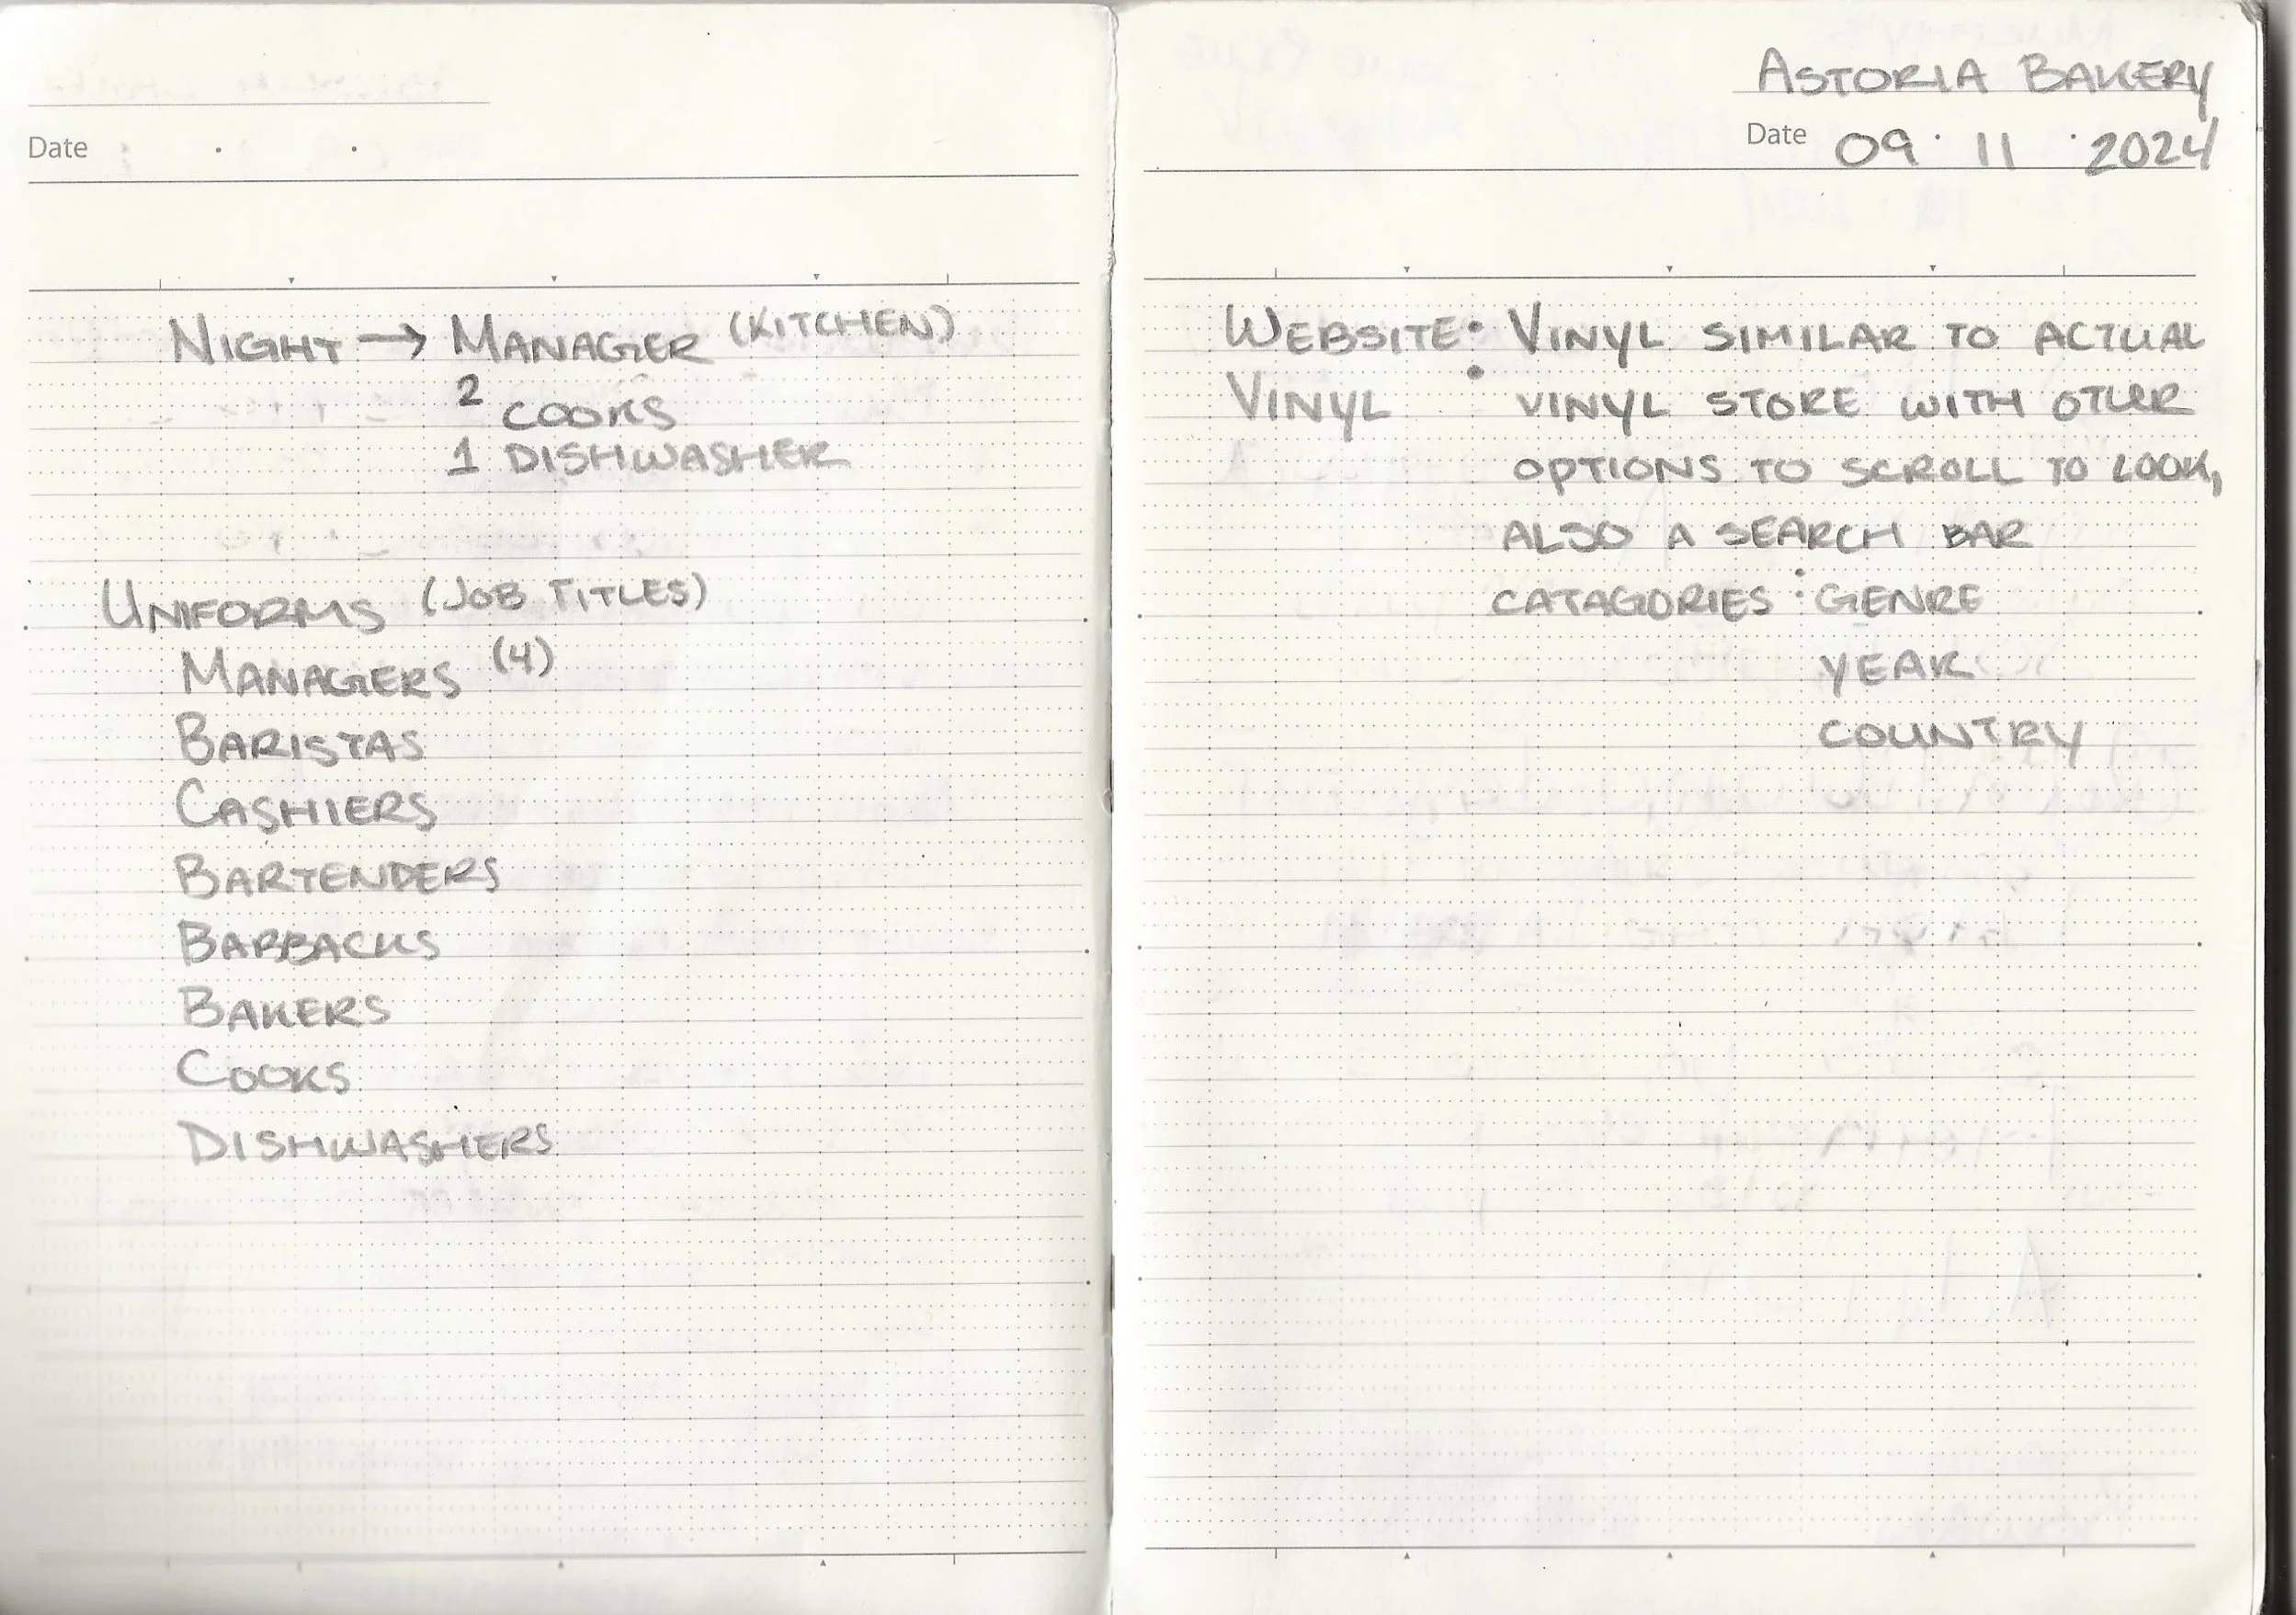 Date . .
NIGHT → MANAGER (KITCHEN)
2 COOKS
1 DISHWASHER
UNIFORMS (JOB TITLES)
MANAGERS (4)
BARISTAS
CASHIERS
BARTENDERS
BARBACKS
BAKERS
COOKS
DISHWASHERS
ASTORIA BAKERY
Date 09 . 11 . 2024
WEBSITE: VINYL SIMILAR TO ACTUAL
VINYL VINYL STORE WITH OTHER
OPTIONS TO SCROLL TO LOOK,
ALSO A SEARCH BAR
CATAGORIES: GENRE
YEAR
COUNTRY